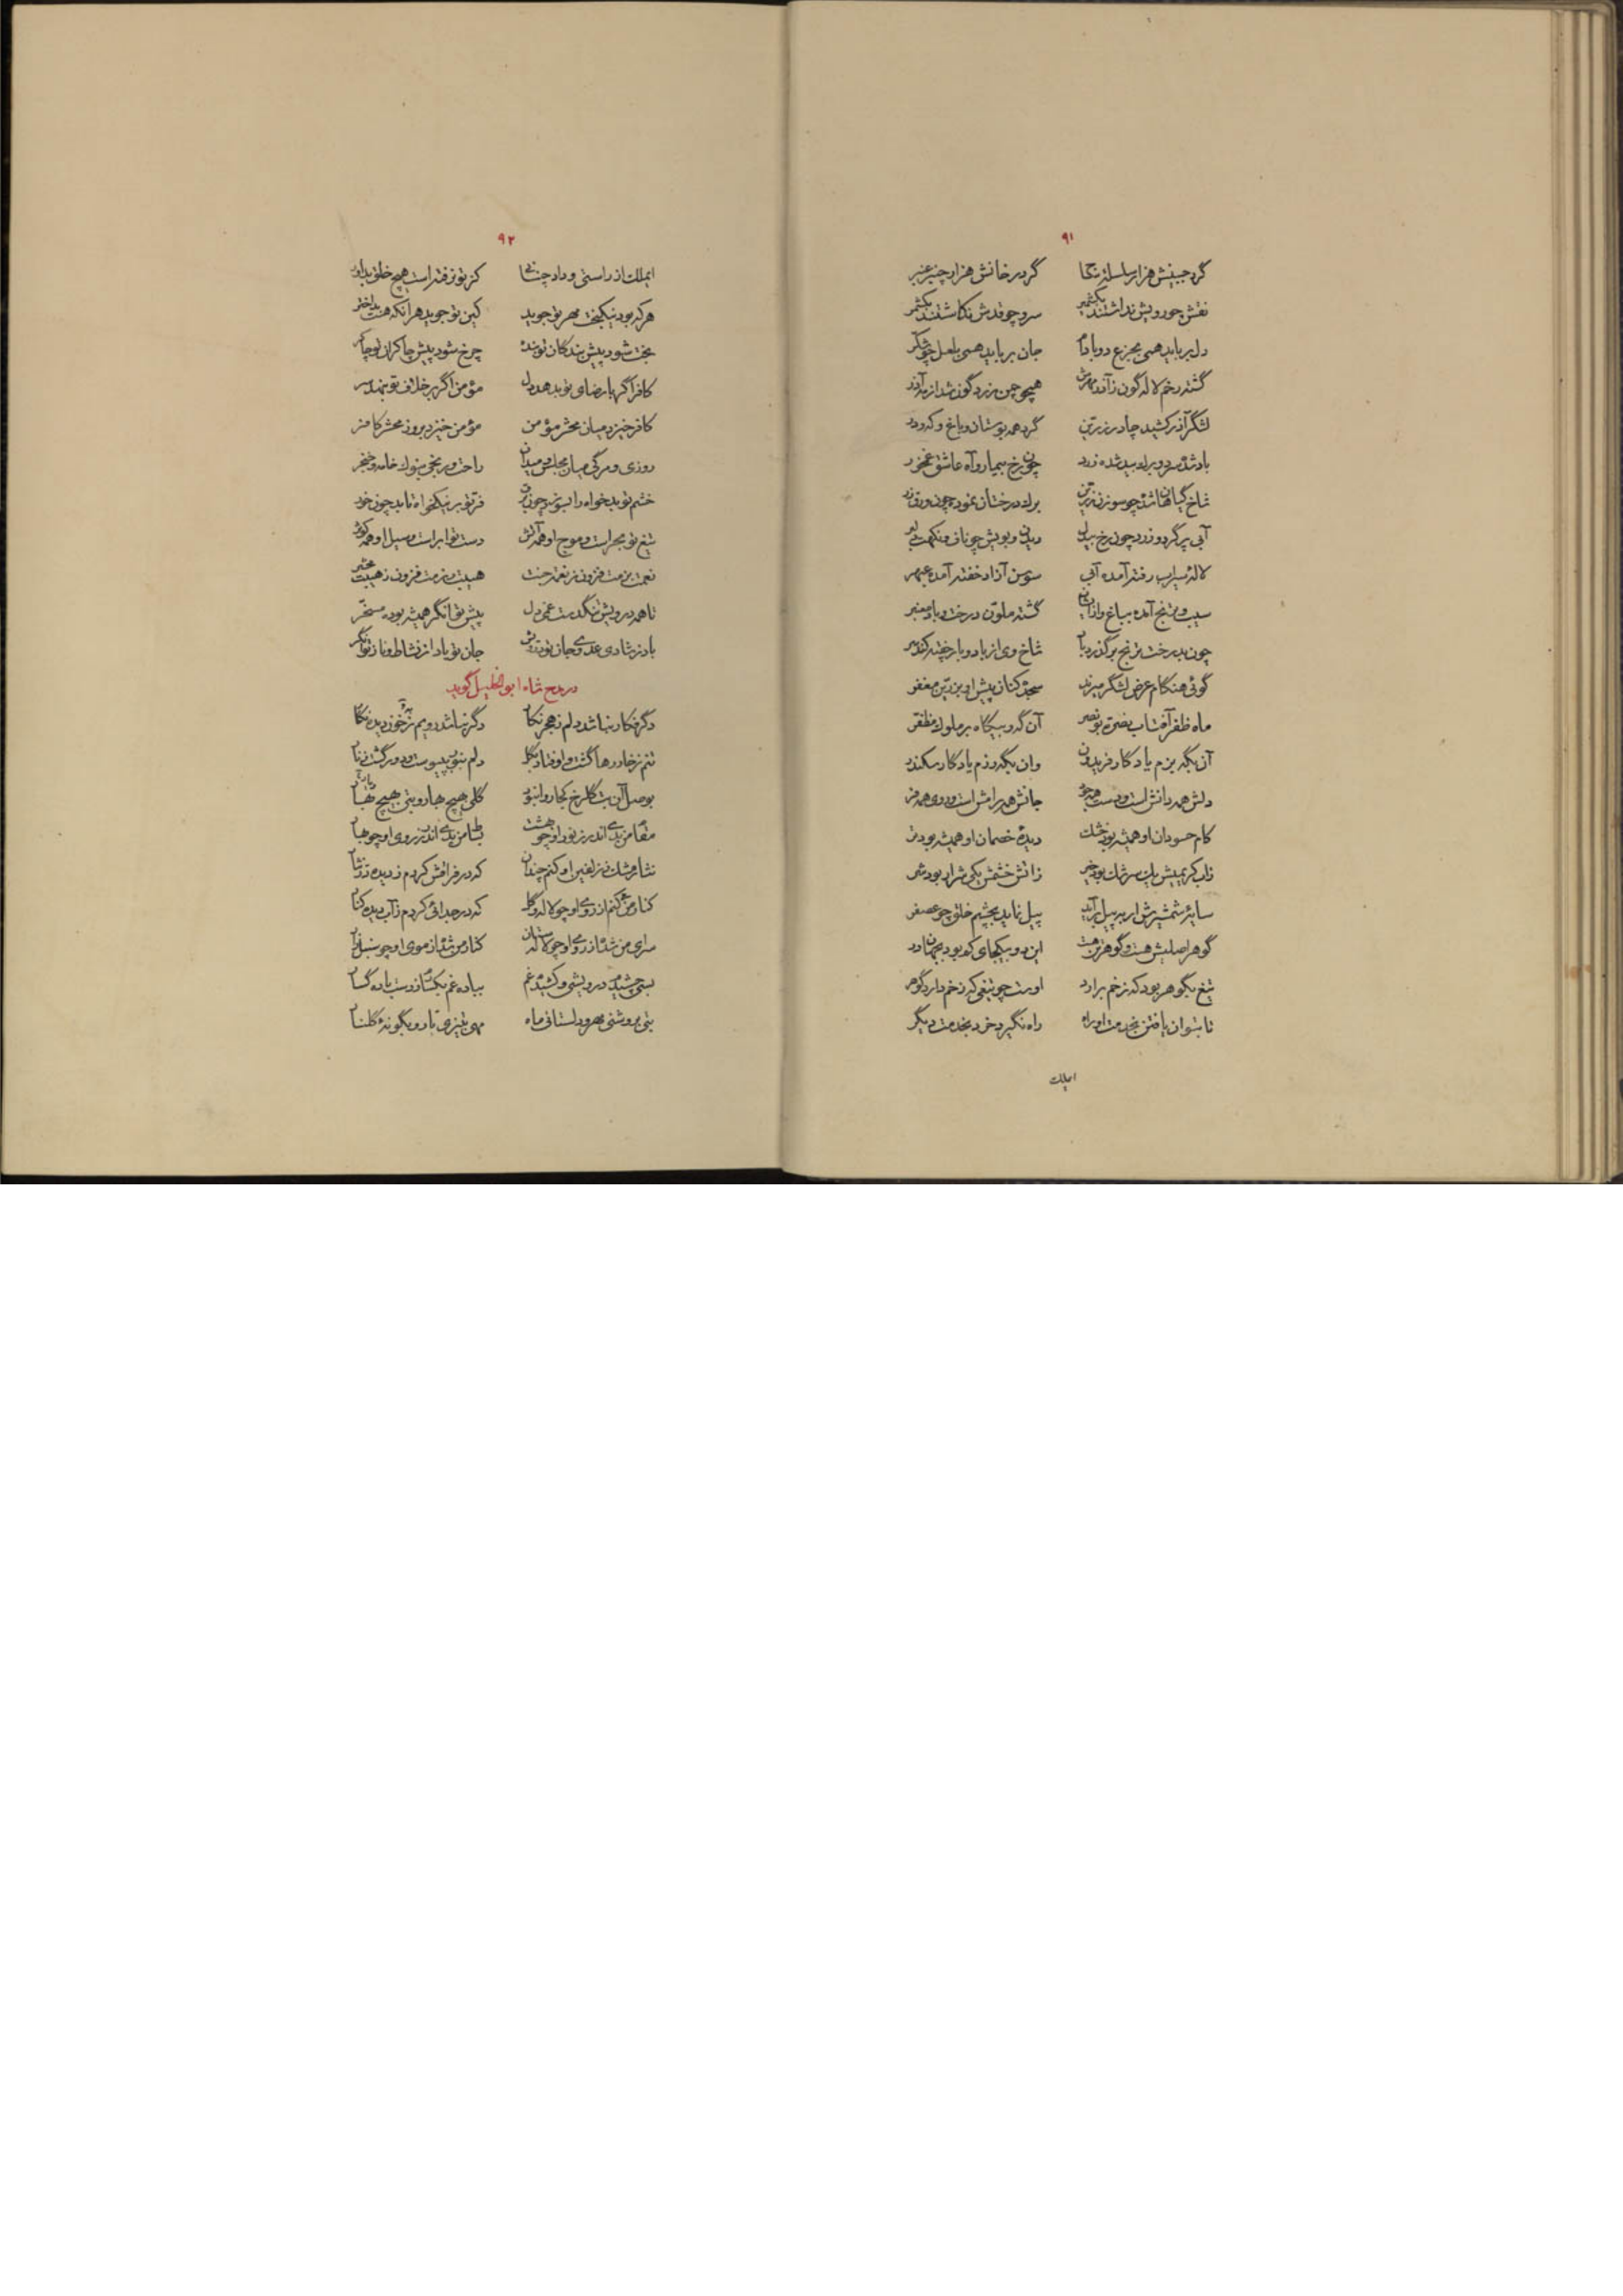 ۹۱
گرد جبینش هزار سلسله زنگار گرد رخانش هزار چنبر عنبر
نقش چو رویش نداشتند بکشمیر سرو چو قدش نکاشتند بکشمر
دل برباید همی بجزع دو بادام جان برباید همی بلعل چو شکر
گشته رخم لاله گون ز آذر مهرش همچو چمن زرد گون شد از مه آذر
لشگر آذر کشید چادر زرین گرد همه بوستان و باغ و که و در
باد شده سرد و برگ بید شده زرد چون رخ بیمار و آه عاشق غمخور
شاخ گیاهان شده چو سوزن زرین برگ درختان نموده چون ورق زر
آبی پر گرد و زرد چون رخ بیدل وین و بویش چو ناف و نکهت دلبر
لالهٔ سیراب رفته آمده آبی سوسن آزاد خفته آمده عبهر
سیب و ترنج آمده بباغ و از ایشان گشته ملون درخت و باد معنبر
چون بدرخت ترنج برگذرد باد شاخ وی از باد و بار چفته کند سر
گوئی هنگام عرض لشگر میرند سجده کنان پیش او بزرین مغفر
ماه ظفر آفتاب نصرة بونصر آن گه و بیگاه بر ملوک مظفر
آن بگه بزم یادگار فریدون وان بگه رزم یادگار سکندر
دلش همه دانش است و دست همه جود جانش همه رامش است و روی همه فر
کام حسودان او همیشه بود خشک دیدهٔ خصمان او همیشه بود تر
زاب کریمیش یک سرشک بود خیر زاتش خشمش یکی شرار بود شر
سایهٔ شمشیرش ار بر پیل برآید پیل نماید بچشم خلق چو عصفر
گوهر اصلیش هست و گوهر تن هست این دو بیکجای که بود بجهان در
تیغ بگوهر بود که زخم برارد اوست چو تیغی که زخم دارد گوهر
تا بتوان یافتن بخدمت او راه راه نگیرد خرد بخدمت دیگر
ایملک
۹۲
ایملک از راستی و داد چنانی کز تو نرفته است هیچ خلق بداور
هرکه بود نیکبخت مهر تو جوید کین تو جوید هرانکه هست بداختر
بخت شود پیش بندگان تو بنده چرخ شود پیش چاکران تو چاکر
کافر اگر با رضای تو بدهد دل مؤمن اگر بر خلاف تو بنهد سر
کافر خیزد میان محشر مؤمن مؤمن خیزد بروز محشر کافر
روزی و مرگی میان مجلس و میدان راحت و رنجی بنوک خامه و خنجر
خشم تو بدخواه را بسوزد چون برق فر تو بر نیکخواه تابد چون خور
تیغ تو بحر است و موج او همه آتش دست تو ابر است و سیل او همه گوهر
نعمت بزمت فزون ز نعمت جنت هیبت رزمت فزون ز هیبت محشر
تا همه درویش تنگدست غمی دل پیش توانگر همیشه بود مسخر
باد ز شادی عدوی جان تو درویش جان تو باد از نشاط و ناز توانگر
در مدح شاه ابوالخلیل گوید
دگر فکار نباشد دلم ز هجر نگار دگر نباشد رویم ز خون دیده نگار
تنم ز خار رها گشت و اوفتاد بگل دلم بنور بپیوست و دور گشت ز نار
بوصل آن بت گلرخ کجا روا نبود گلی بهیچ بهار و بتی بهیچ بهار
مقام من بدی اندر ز نور او چو بهشت بساط من بدی اندر ز روی او چو بهار
نثار مشک ز زلفین او کنم چندان که در فراقش کردم ز دیده در نثار
کنار من کنم از روی او چو لاله و گل که در جدائی کردم ز آب دیده کنار
سرای من شده از روی او چو لاله ستان کنار من شده از موی او چو سنبل زار
بسی چشیده درویشی و کشیده غم بباده غم بگسار از دست باده گسار
بتی بروشنی مهر و دلستانی ماه مهی بتیزی نار و بگونهٔ گلنار